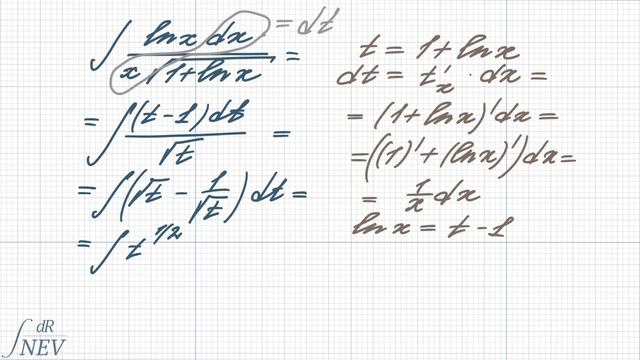 ∫ ln x dx / (x √(1 + ln x)) = = dt
= ∫ (t - 1) dt / √t =
= ∫ (√t - 1/√t) dt =
= ∫ t^1/2
t = 1 + ln x
dt = t'ₓ · dx =
= (1 + ln x)' dx =
= ((1)' + (ln x)') dx =
= 1/x dx
ln x = t - 1
∫ dR
NEV